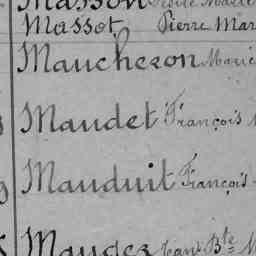 Masson
Massot Pierre Mar
Maucheron Marie
Maudet François
Mauduit François
Maugez Jean Bte M